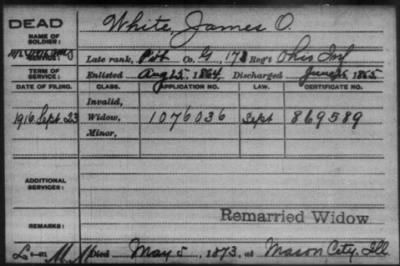 DEAD
NAME OF SOLDIER:
White, James O.
SERVICE:
Late rank, Pvt Co. G, 178 Reg't Ohio Inf
TERM OF SERVICE:
Enlisted Aug 25, 1864 Discharged June 26, 1865
DATE OF FILING. CLASS. APPLICATION NO. LAW. CERTIFICATE NO.
Invalid,
1916 Sept 23 Widow, 1076036 Sept 869589
Minor,
ADDITIONAL SERVICES:
Remarried Widow
REMARKS:
Died May 5, 1873, at Mason City, Ill